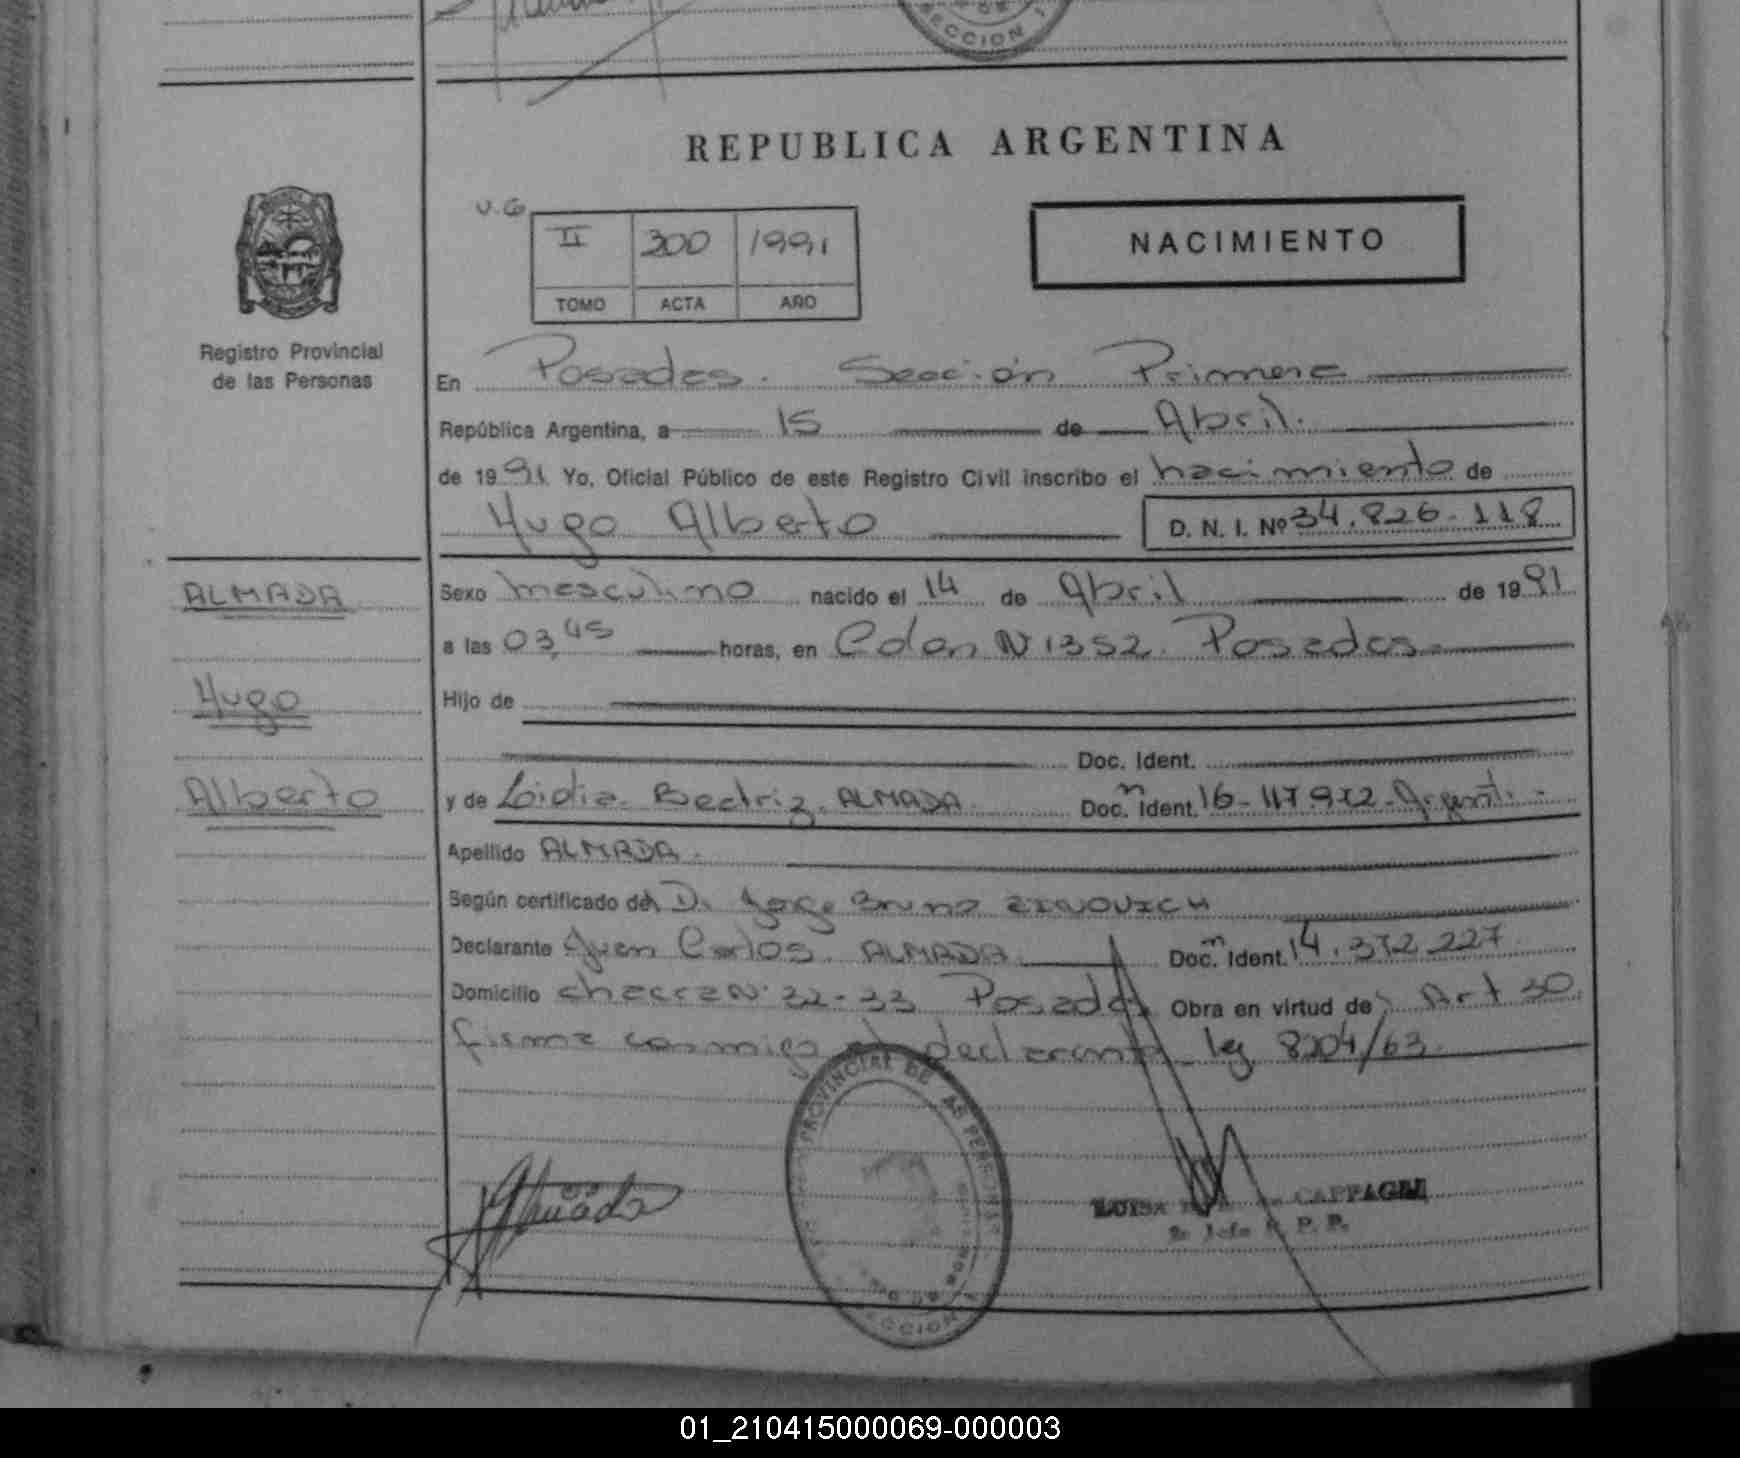 SECCION 1
REPUBLICA ARGENTINA
U.G
II 300 1991
TOMO ACTA AÑO
NACIMIENTO
Registro Provincial
de las Personas
En Posadas. Sección Primera
República Argentina, a 15 de Abril.
de 1991 Yo, Oficial Público de este Registro Civil inscribo el nacimiento de
Hugo Alberto D. N. I. Nº 34.826.118
ALMADA
Hugo
Alberto
Sexo masculino nacido el 14 de Abril de 1991
a las 03,45 horas, en Colon Nº 1352. Posadas.
Hijo de
Doc. Ident.
y de Lidia Beatriz ALMADA Doc. Ident. 16-117.972-Argent.
Apellido ALMADA.
Según certificado del D. Jorge Bruno ZINOVICH
Declarante Juan Carlos ALMADA Doc. Ident. 14.372.227
Domicilio chacra Nº 32-33 Posadas Obra en virtud de: Art 30
firma conmigo el declarante ley 8204/63.
PROVINCIAL DE LAS PERSONAS
SECCION
LUISA CAPPAGLI
2º Jefe R. P. P.
01_210415000069-000003